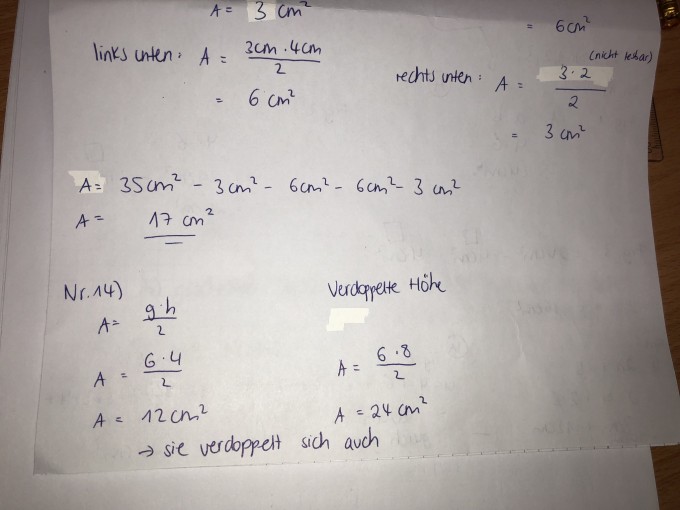 A = 3 cm²
= 6 cm²
links unten: A = 3cm · 4cm / 2
= 6 cm²
(nicht lesbar)
rechts unten: A = 3 · 2 / 2
= 3 cm²
A = 35 cm² - 3 cm² - 6cm² - 6cm² - 3 cm²
A = 17 cm²
Nr. 14)
A = g·h / 2
A = 6·4 / 2
A = 12 cm²
Verdoppelte Höhe
A = 6·8 / 2
A = 24 cm²
→ sie verdoppelt sich auch